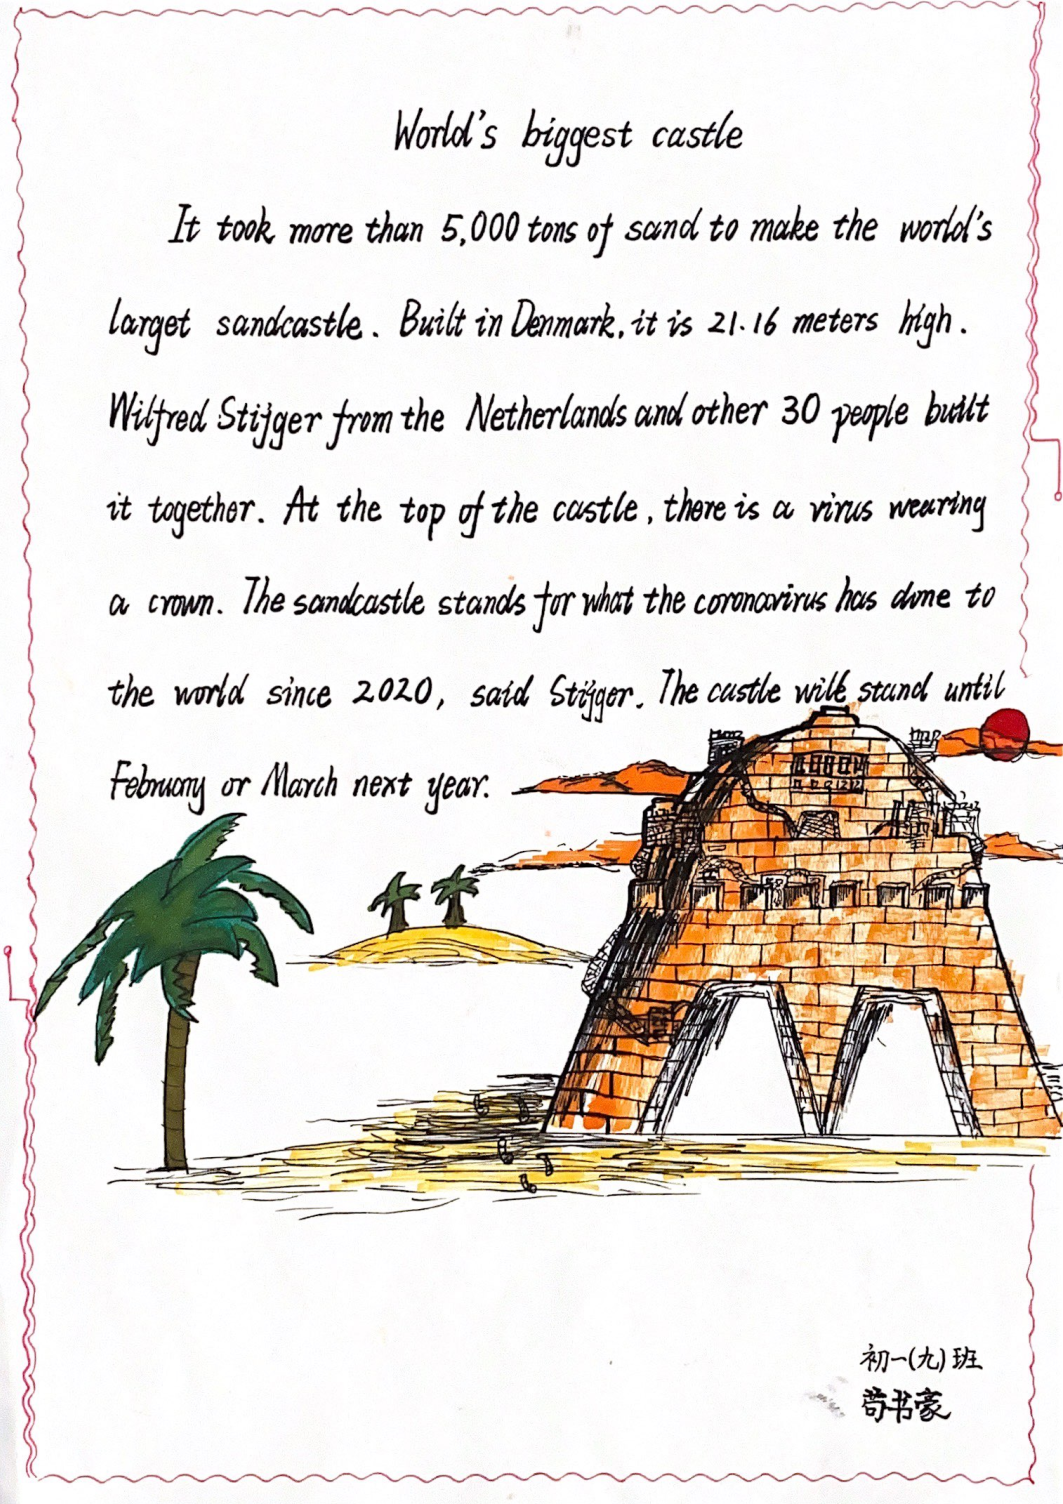 World's biggest castle
It took more than 5,000 tons of sand to make the world's
larget sandcastle. Built in Denmark, it is 21.16 meters high.
Wilfred Stijger from the Netherlands and other 30 people built
it together. At the top of the castle, there is a virus wearing
a crown. The sandcastle stands for what the coronavirus has done to
the world since 2020, said Stijger. The castle will stand until
February or March next year.
初一(九)班
苟书豪